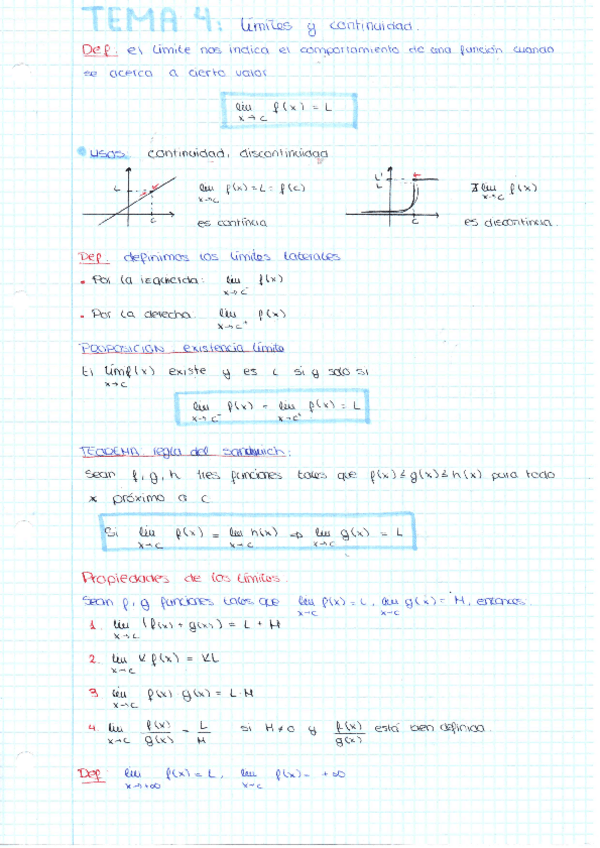 TEMA 4: límites y continuidad.
Def: el límite nos indica el comportamiento de una función cuando
se acerca a cierto valor
lim x→c f(x) = L
• USOS: continuidad, discontinuidad
L c lim x→c f(x) = L = f(c) L' L c ∄ lim x→c f(x)
es continua es discontinua.
Def: definimos los límites laterales
• Por la izquierda: lim x→c⁻ f(x)
• Por la derecha: lim x→c⁺ f(x)
PROPOSICIÓN: existencia límite
El lim x→c f(x) existe y es L si y solo si
lim x→c⁻ f(x) = lim x→c⁺ f(x) = L
TEOREMA: regla del sandwich:
Sean f, g, h tres funciones tales que f(x) ≤ g(x) ≤ h(x) para todo
x próximo a c
Si lim x→c f(x) = lim x→c h(x) ⇒ lim x→c g(x) = L
Propiedades de los límites.
Sean f, g funciones tales que lim x→c f(x) = L, lim x→c g(x) = M, entonces.
1. lim x→c (f(x) + g(x)) = L + M
2. lim x→c K f(x) = KL
3. lim x→c f(x) · g(x) = L · M
4. lim x→c f(x)/g(x) = L/M si M ≠ 0 y f(x)/g(x) está bien definida.
Def: lim x→+∞ f(x) = L, lim x→c f(x) = +∞